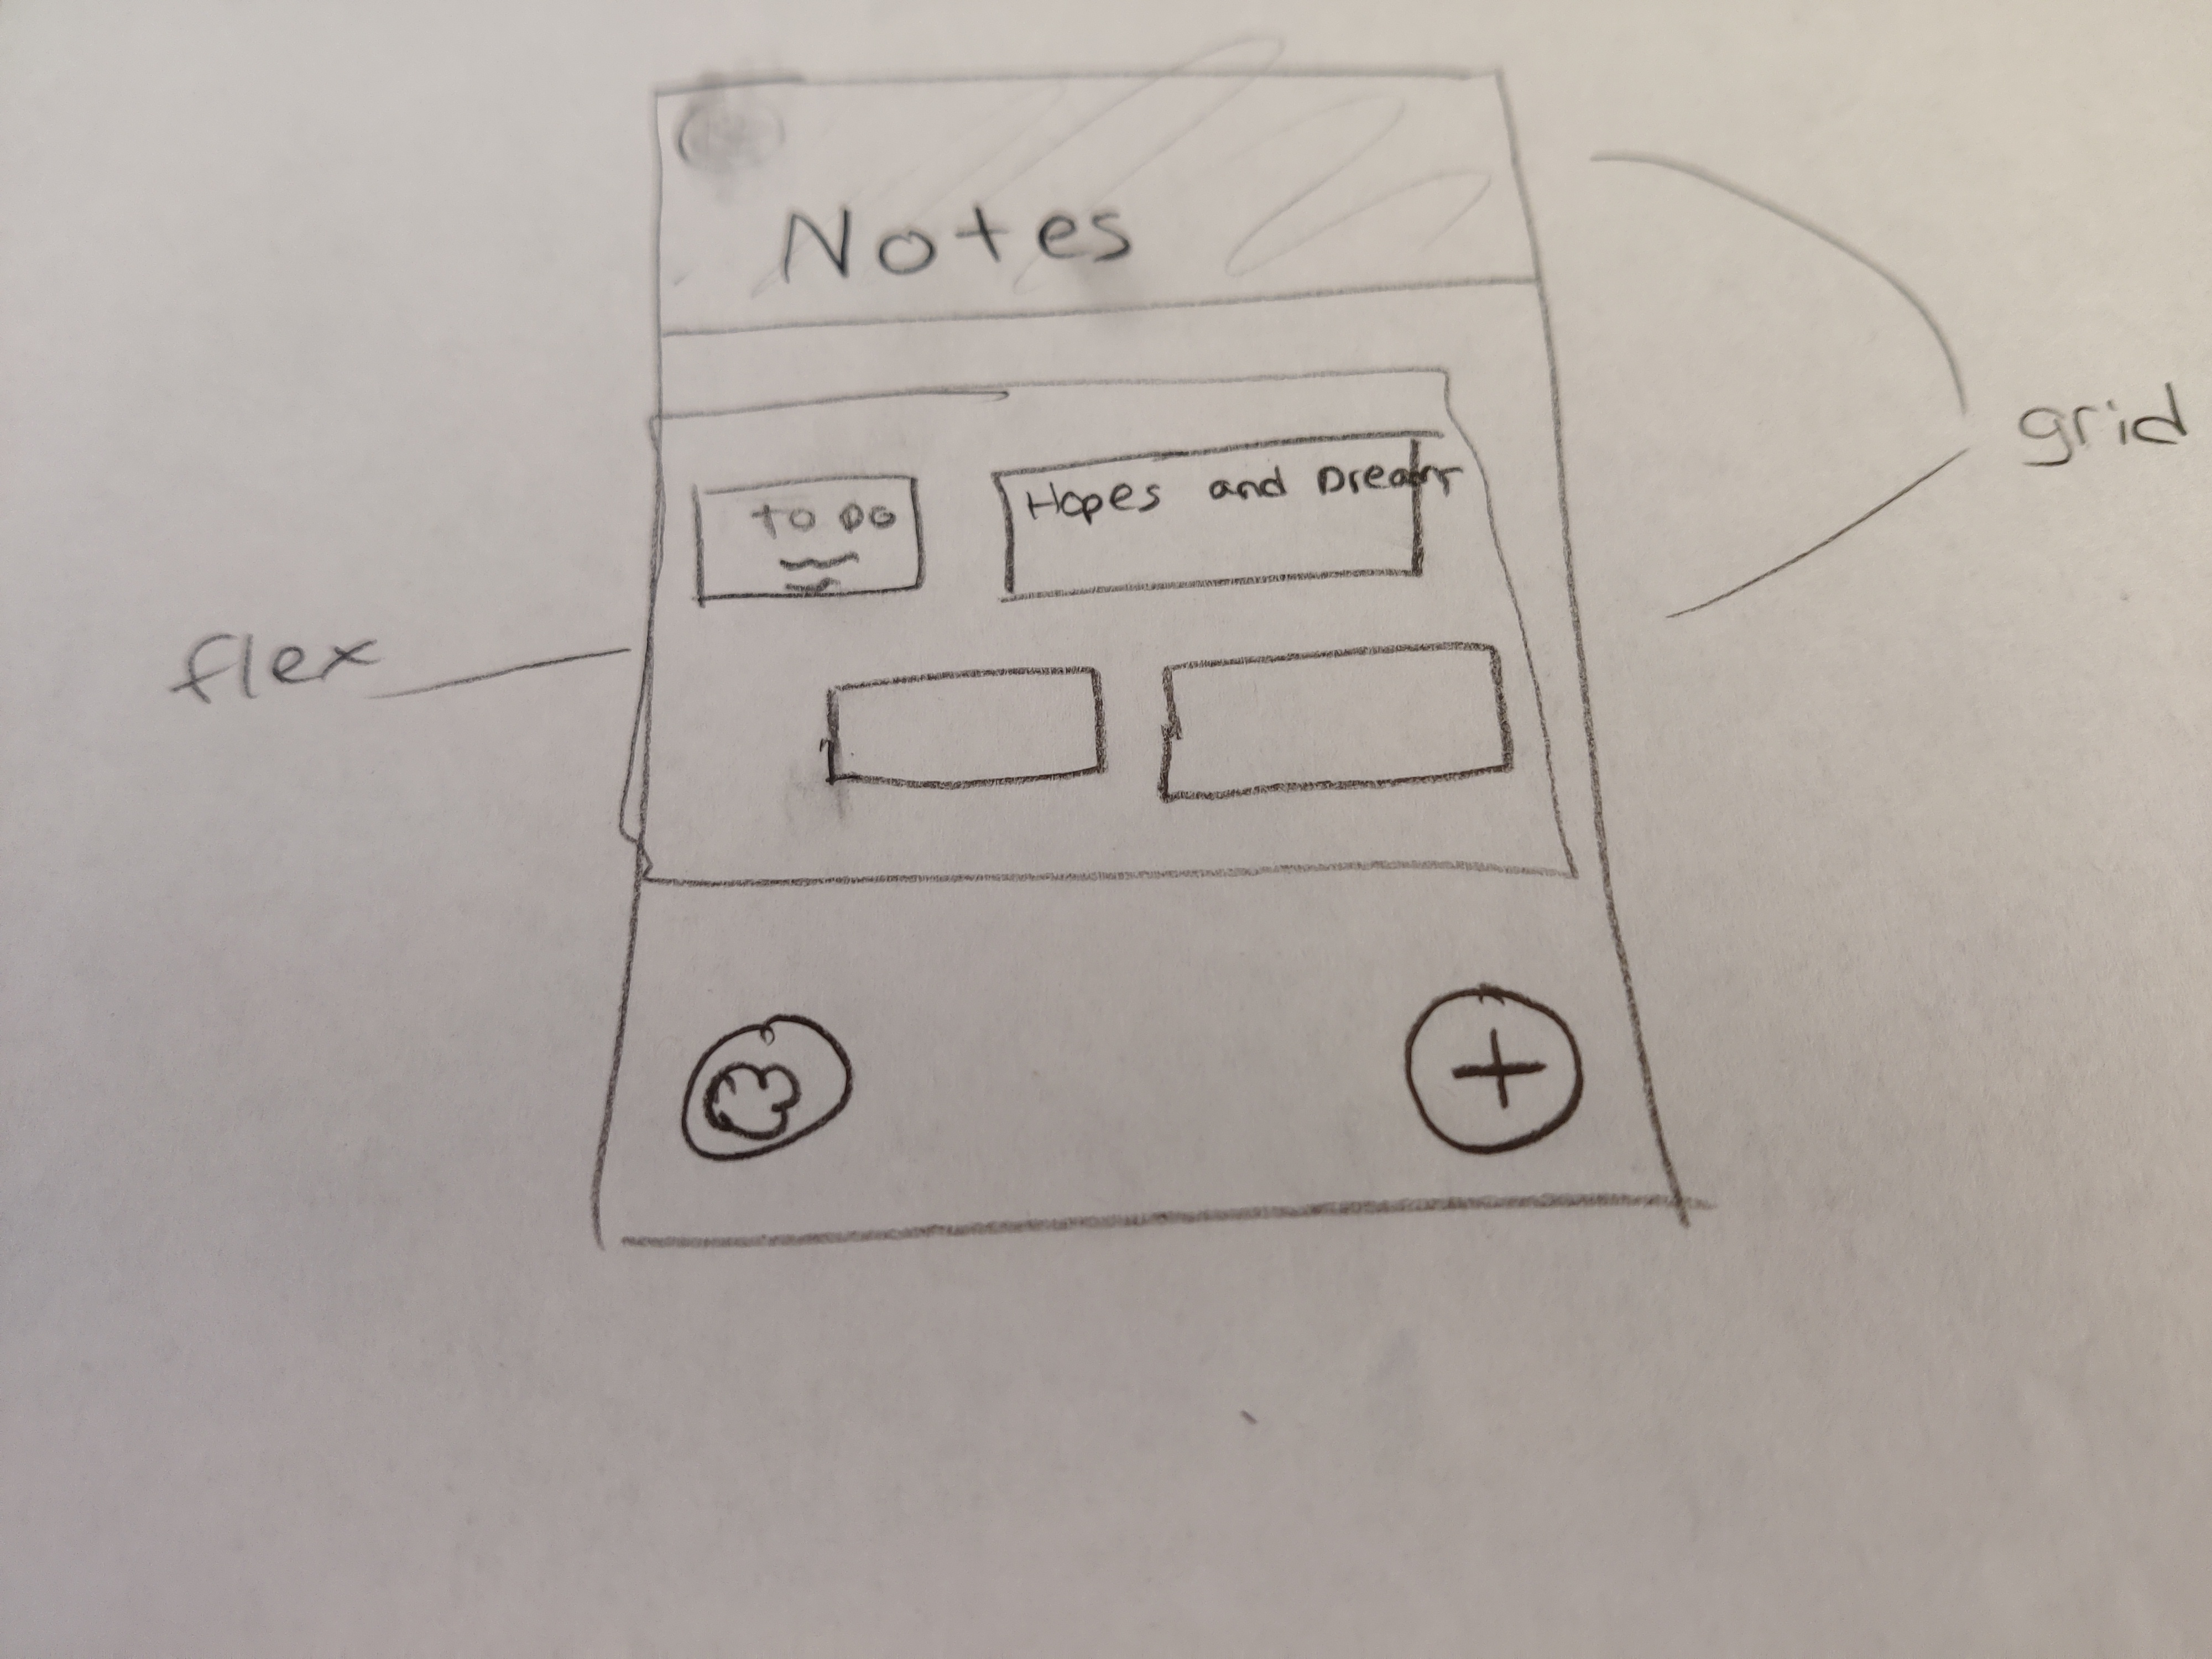 Notes
grid
to do
Hopes and Dreams
flex
+